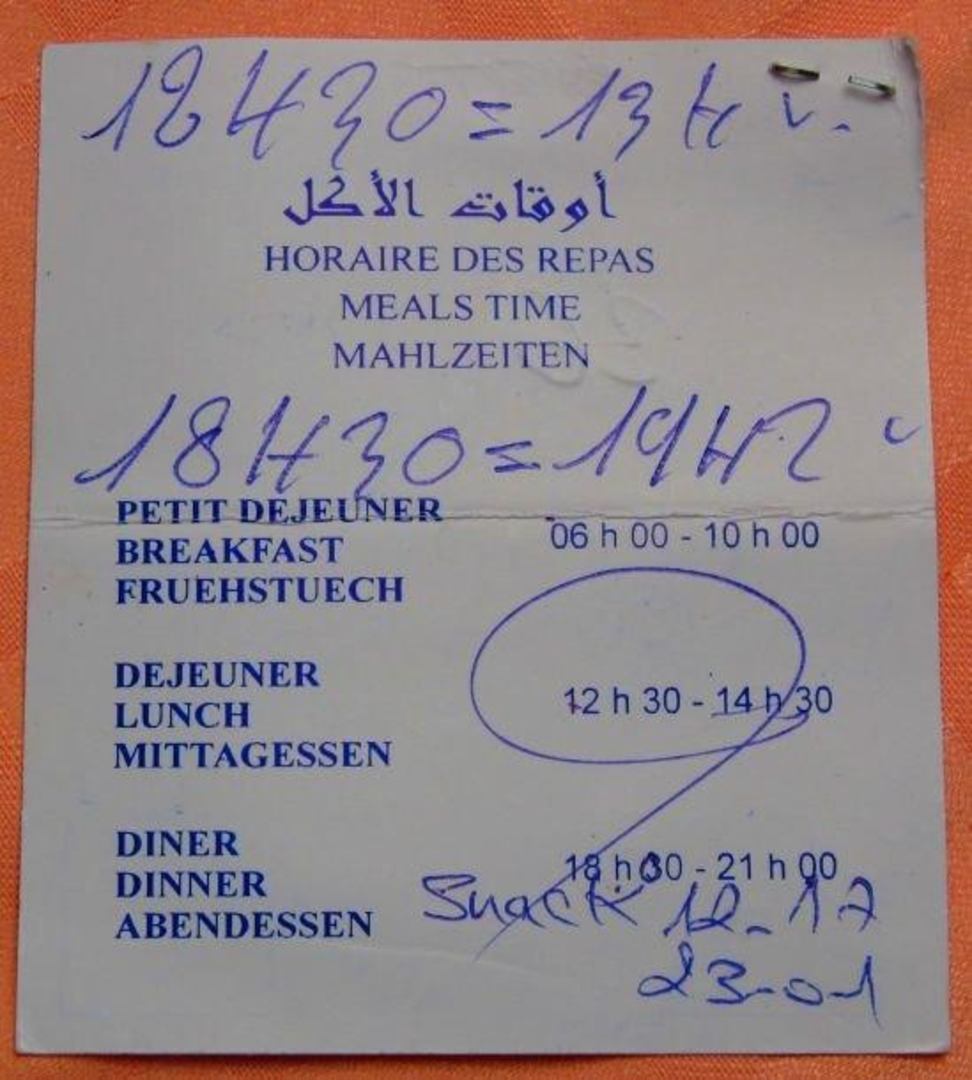 12H30 = 13H
أوقات الأكل
HORAIRE DES REPAS
MEALS TIME
MAHLZEITEN
18H30 = 19H
PETIT DEJEUNER
BREAKFAST 06 h 00 - 10 h 00
FRUEHSTUECH
DEJEUNER
LUNCH 12 h 30 - 14 h 30
MITTAGESSEN
DINER
DINNER 18 h 30 - 21 h 00
ABENDESSEN
Snack 12-17
23-01